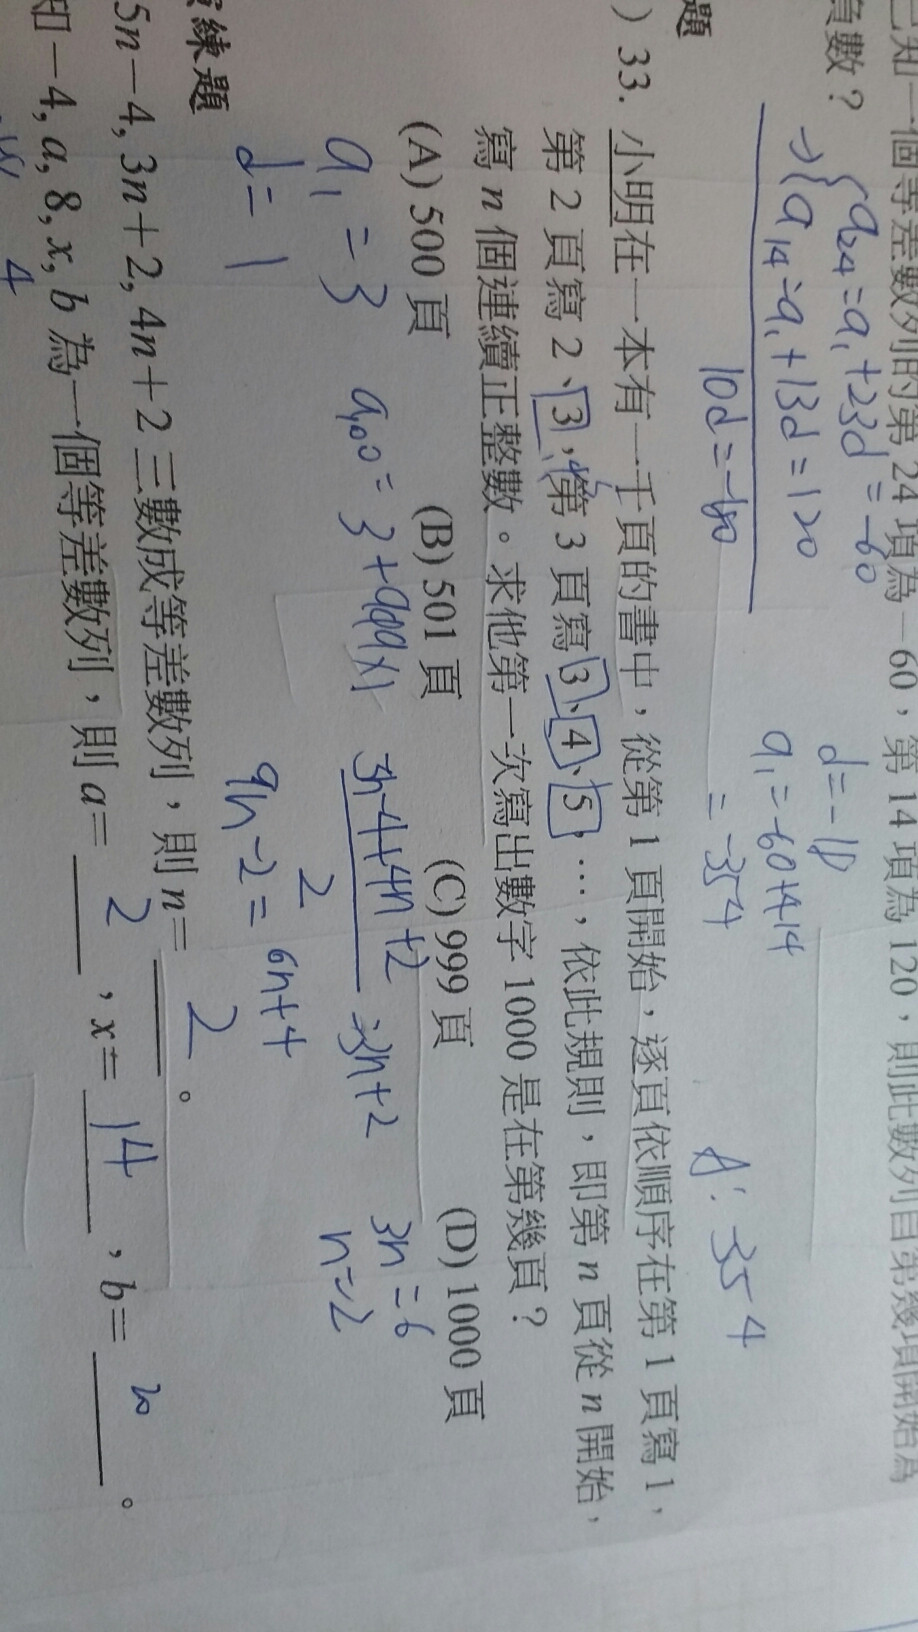 已知一個等差數列的第 24 項為 −60，第 14 項為 120，則此數列自第幾項開始為
負數？
{a24 = a1 + 23d = -60
⇒ a14 = a1 + 13d = 120
10d = -180
d = -18
a1 = -60 + 414
= 354
A: 354
題
) 33. 小明在一本有一千頁的書中，從第 1 頁開始，逐頁依順序在第 1 頁寫 1，
第 2 頁寫 2、3，第 3 頁寫 3、4、5，…，依此規則，即第 n 頁從 n 開始，
寫 n 個連續正整數。求他第一次寫出數字 1000 是在第幾頁？
(A) 500 頁 (B) 501 頁 (C) 999 頁 (D) 1000 頁
a1 = 3
d = 1
3n = 6
n = 2
9n-2 = 6n+4
練題
5n − 4, 3n + 2, 4n + 2 三數成等差數列，則 n = 2 。
知 − 4, a, 8, x, b 為一個等差數列，則 a = 2 ，x = 14 ，b = 20 。
4